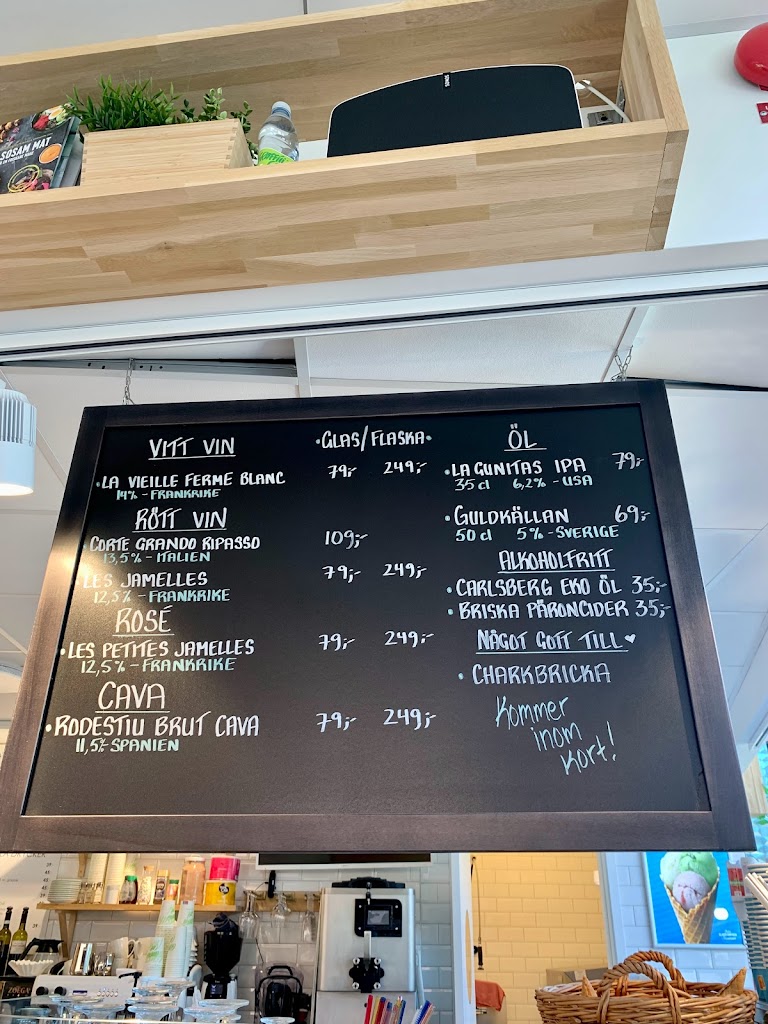 SOSAM MAT
SONOS
VITT VIN
•GLAS/FLASKA•
•LA VIEILLE FERME BLANC 79,- 249,-
14% - FRANKRIKE
RÖTT VIN
•CORTE GRANDO RIPASSO 109,-
13,5% - ITALIEN
•LES JAMELLES 79,- 249,-
12,5% - FRANKRIKE
ROSÉ
•LES PETITES JAMELLES 79,- 249,-
12,5% - FRANKRIKE
CAVA
•RODESTIU BRUT CAVA 79,- 249,-
11,5% - SPANIEN
ÖL
•LAGUNITAS IPA 79,-
35 cl 6,2% - USA
•GULDKÄLLAN 69,-
50 cl 5% - SVERIGE
ALKOHOLFRITT
•CARLSBERG EKO ÖL 35,-
•BRISKA PÄRONCIDER 35,-
NÅGOT GOTT TILL ♥
•CHARKBRICKA
Kommer
inom
kort!